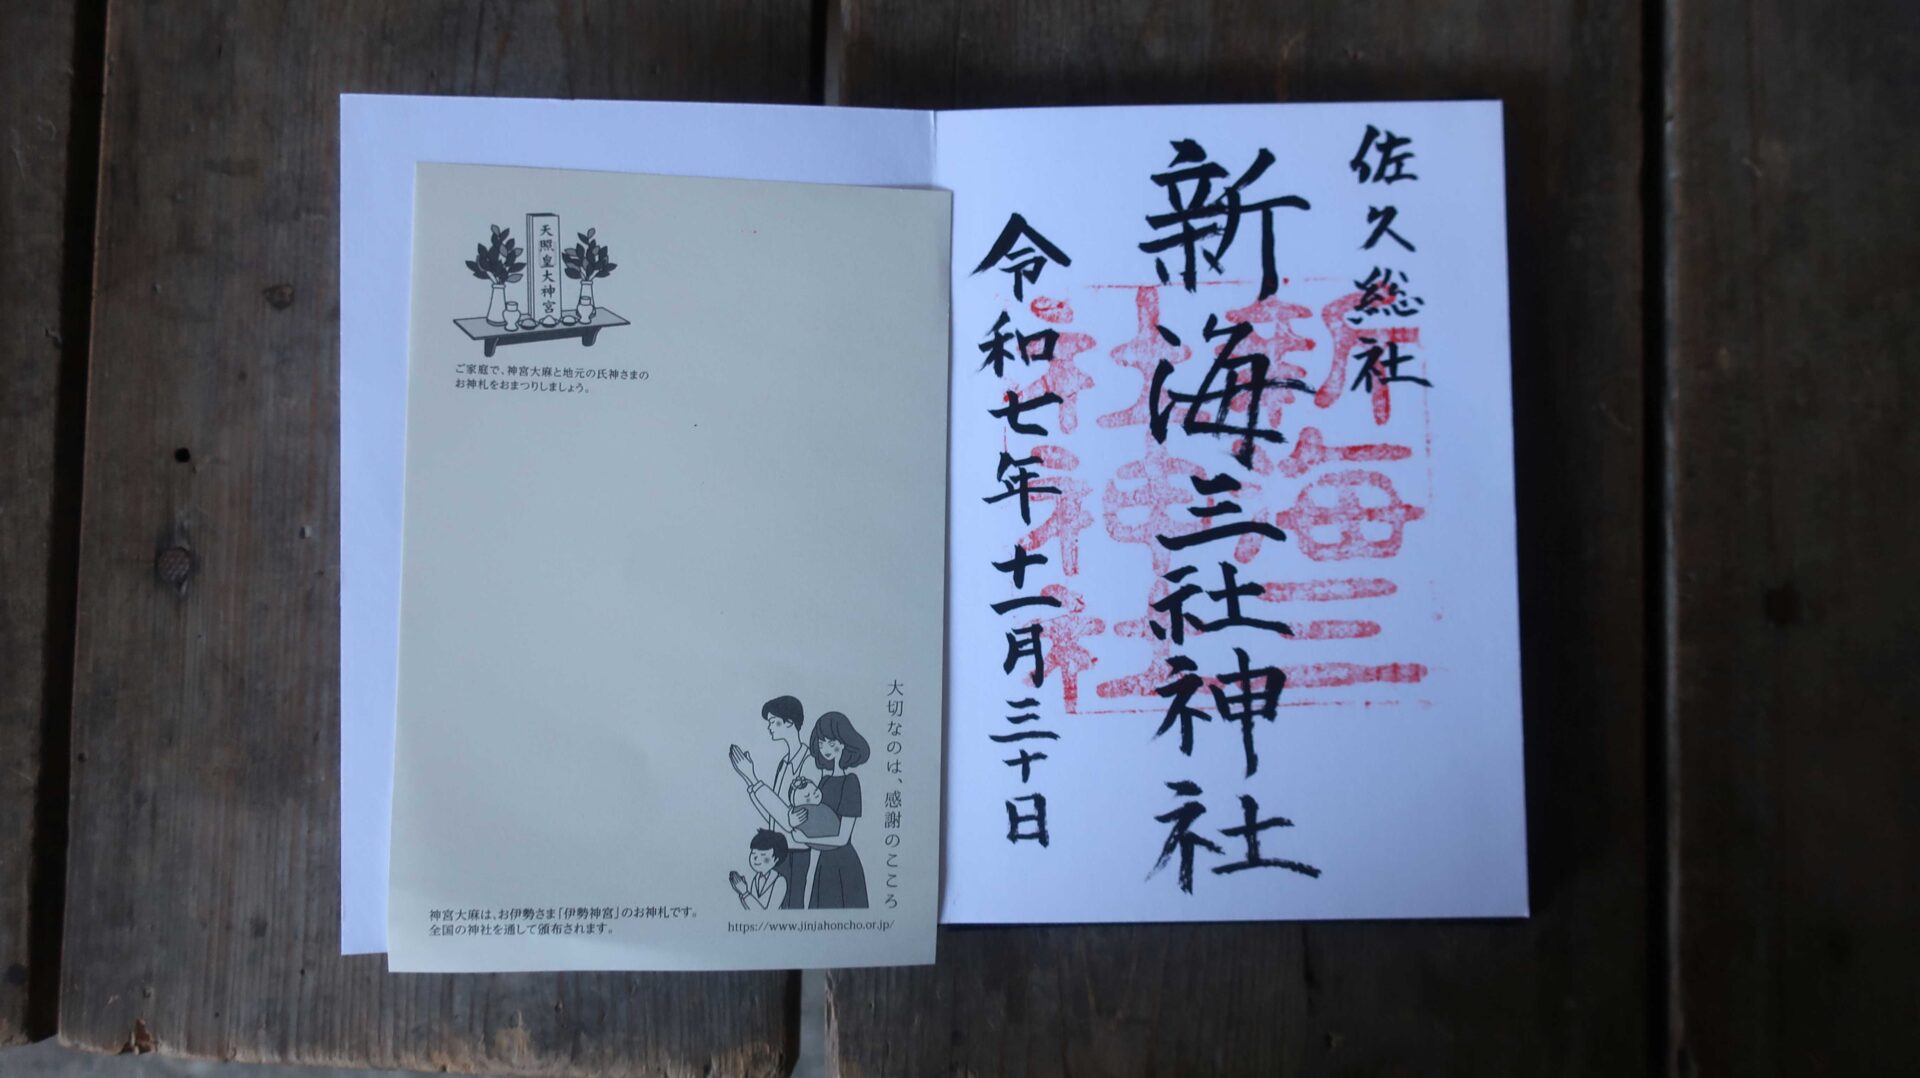 佐久総社
新海三社神社
令和七年十一月三十日
新海三
社神社
天照皇大神宮
ご家庭で、神宮大麻と地元の氏神さまの
お神札をおまつりしましょう。
大切なのは、感謝のこころ
神宮大麻は、お伊勢さま「伊勢神宮」のお神札です。
全国の神社を通して頒布されます。
https://www.jinjahoncho.or.jp/